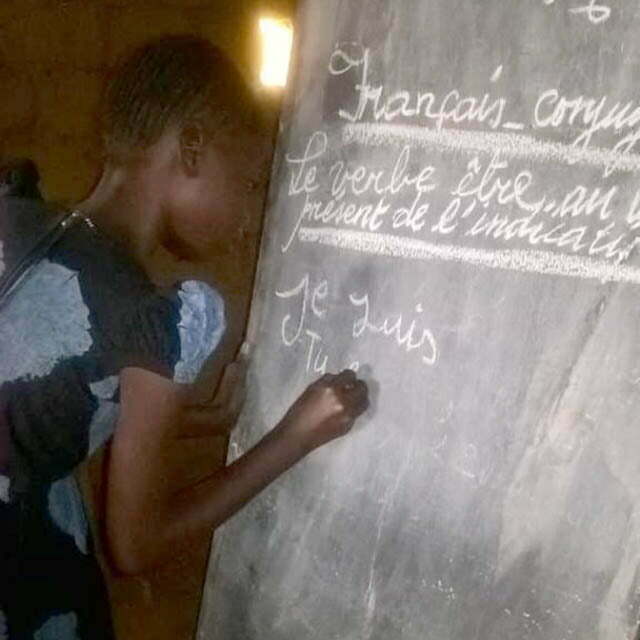 Français_ conjug
Le verbe être..au
présent de l'indicati
Je Suis
Tu